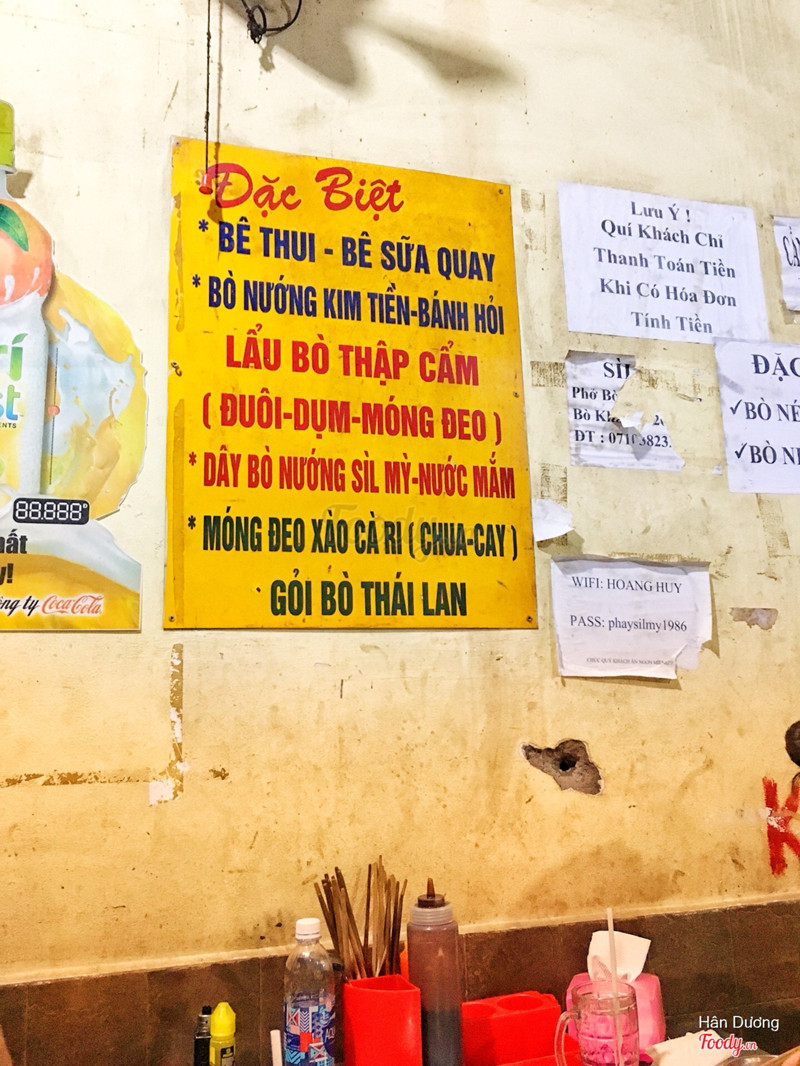 Đặc Biệt
* BÊ THUI - BÊ SỮA QUAY
* BÒ NƯỚNG KIM TIỀN-BÁNH HỎI
LẨU BÒ THẬP CẨM
( ĐUÔI-DỤM-MÓNG ĐEO )
* DÂY BÒ NƯỚNG SÌL MỲ-NƯỚC MẮM
* MÓNG ĐEO XÀO CÀ RI ( CHUA-CAY )
GỎI BÒ THÁI LAN
Lưu Ý !
Quí Khách Chỉ
Thanh Toán Tiền
Khi Có Hóa Đơn
Tính Tiền
Phở
Bò
ĐT :
ĐẶC
✓BÒ NÉ
✓BÒ
WIFI: HOANG HUY
PASS: phaysilmy1986
CHÚC QUÝ KHÁCH ĂN NGON MIỆNG
88.888
ty Coca-Cola
Hân Dương
Foody.vn